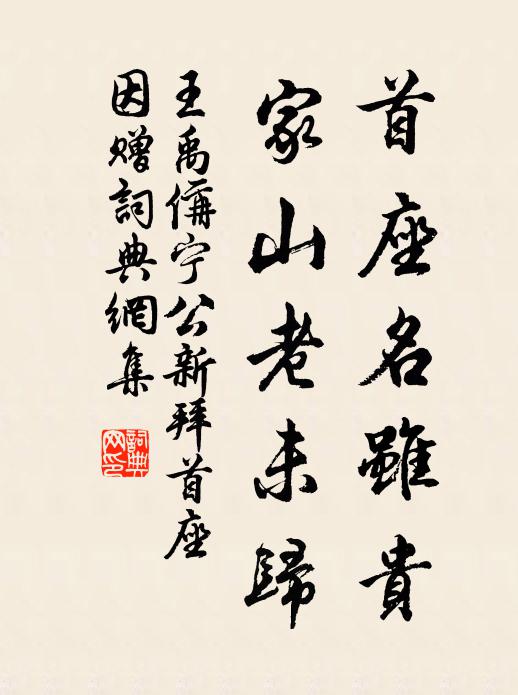 首座名雖貴
家山老未歸
王禹偁宁公新拜首座
因赠詞典網集
詞典網印